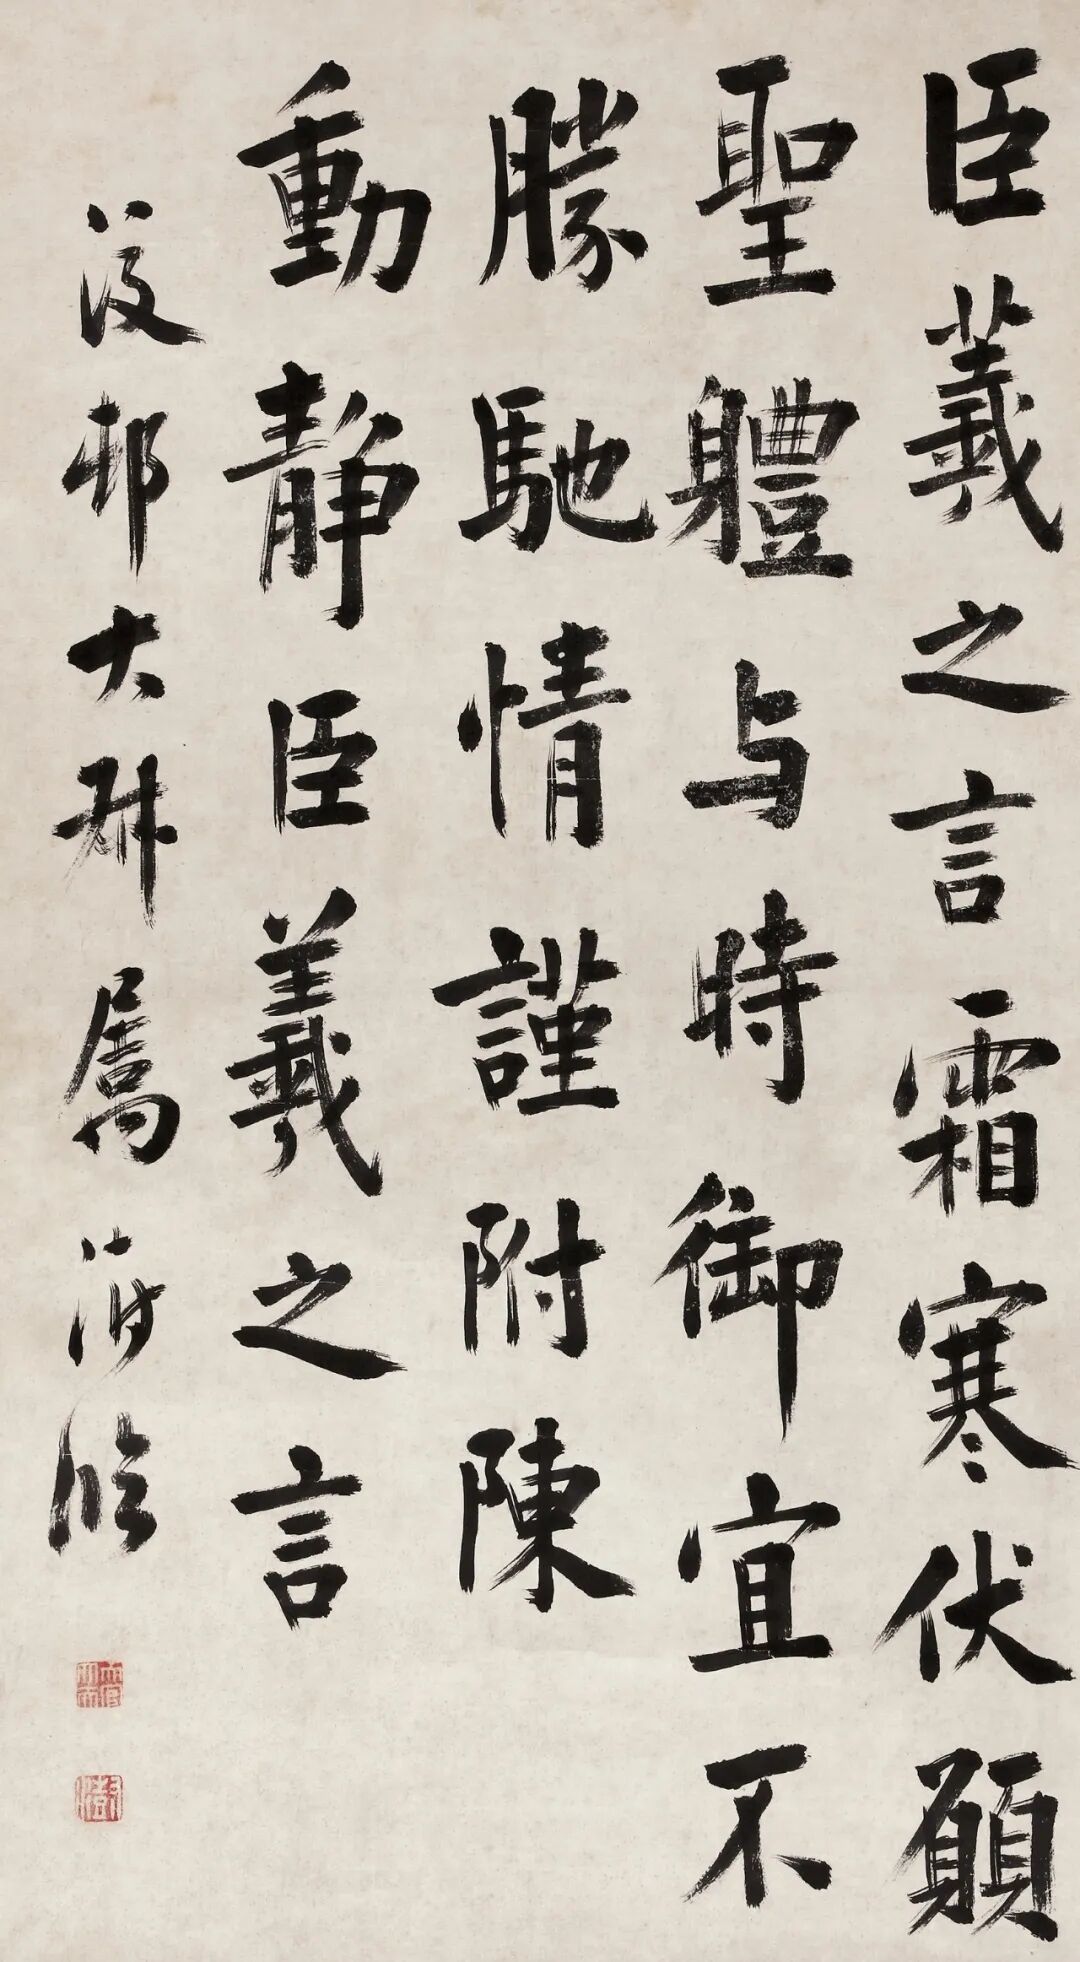 臣羲之言霜寒伏願
聖軆与時御宜不
勝馳情謹附陳
動静臣羲之言
大 屬 澍臨